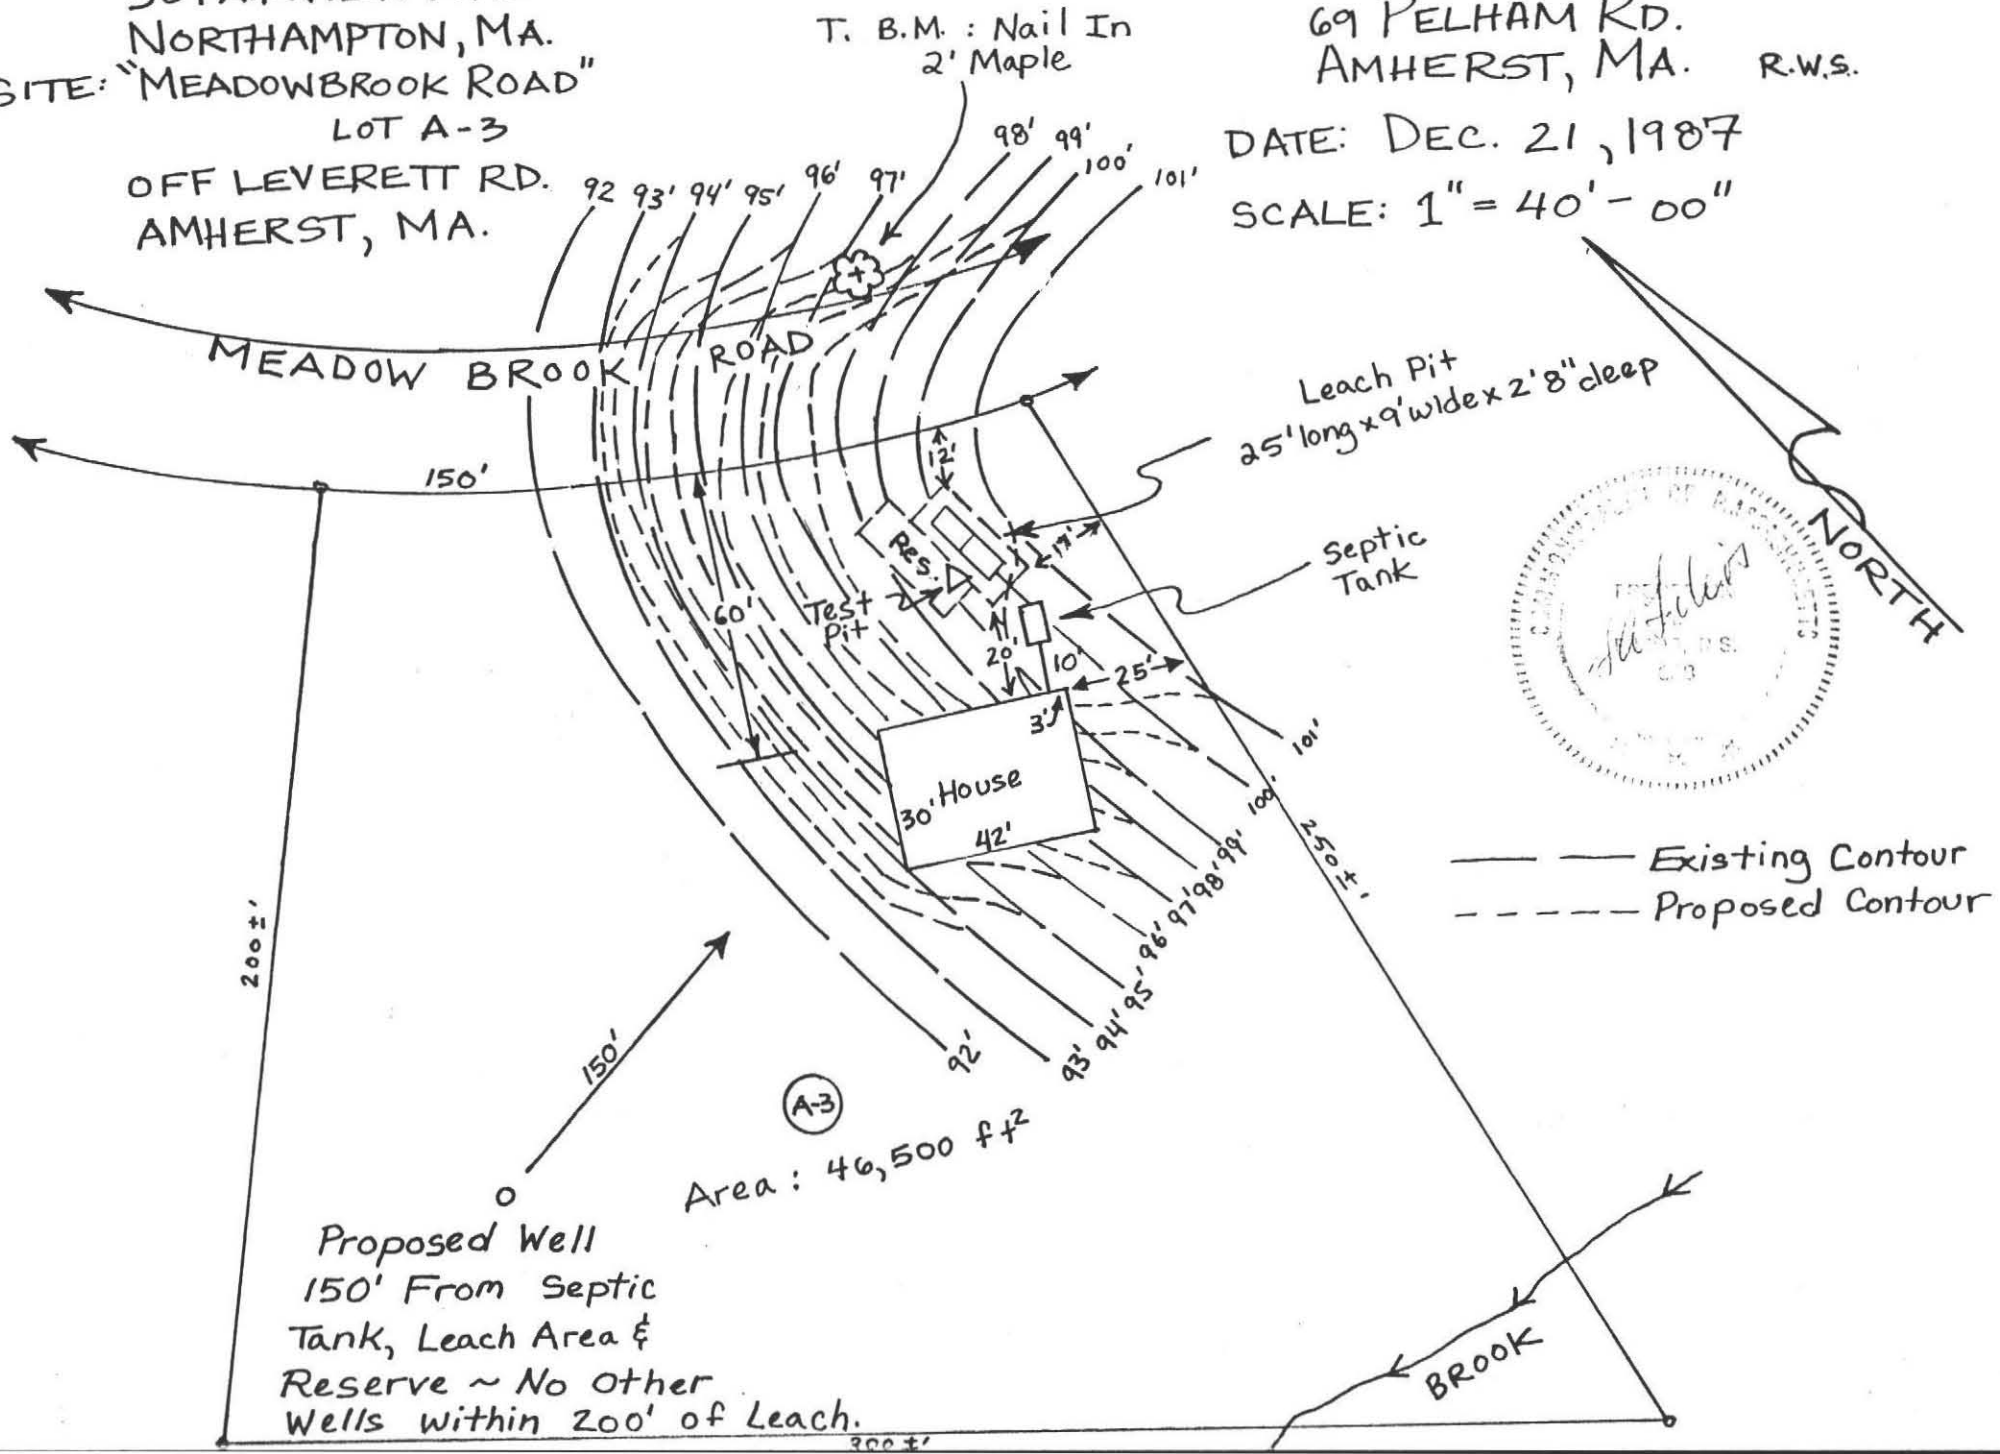 NORTHAMPTON, MA.
SITE: "MEADOWBROOK ROAD"
LOT A-3
OFF LEVERETT RD.
AMHERST, MA.
T. B.M. : Nail In
2' Maple
69 PELHAM RD.
AMHERST, MA. R.W.S.
DATE: DEC. 21, 1987
SCALE: 1" = 40' - 00"
92 93' 94' 95' 96' 97' 98' 99' 100' 101'
MEADOW BROOK ROAD
150'
Leach Pit
25' long x 9' wide x 2'8" deep
12'
17'
Res.
Septic
Tank
NORTH
60'
Test
Pit
20'
10'
25'
3'
House
30'
42'
101'
100'
99'
98'
97'
96'
95'
94'
93'
92'
250±'
Existing Contour
Proposed Contour
200±'
150'
A-3
Area: 46,500 ft²
Proposed Well
150' From Septic
Tank, Leach Area &
Reserve ~ No Other
Wells Within 200' of Leach.
BROOK